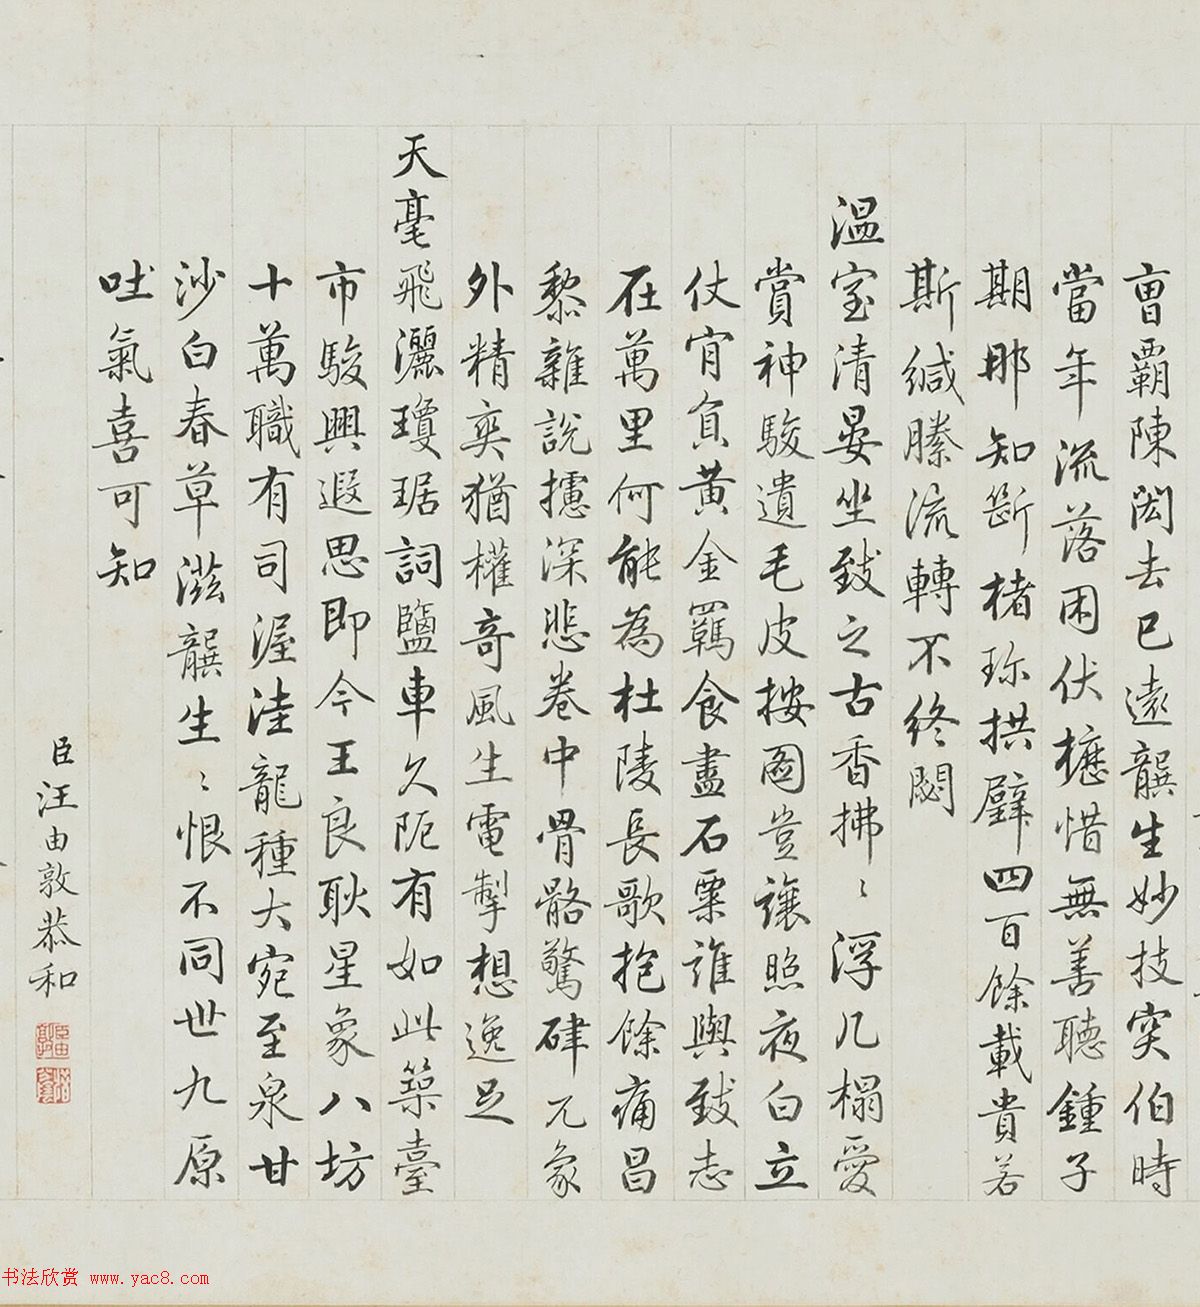 曹霸陳閎去已遠龔生妙技突伯時
當年流落困伏櫪惜無善聽鍾子
期那知斷楮珍拱璧四百餘載貴若
斯緘縢流轉不終閟
溫室清晏坐致之古香拂〻浮几榻愛
賞神駿遺毛皮按圖豈讓照夜白立
仗肎負黃金羈食盡石粟誰與致志
在萬里何能為杜陵長歌抱餘痛昌
黎雜說攄深悲卷中骨骼驚硉兀象
外精奕猶權奇風生電掣想逸足
天毫飛灑瓊琚詞鹽車久阨有如此築臺
市駿興遐思即今王良耿星象八坊
十萬職有司渥洼龍種大宛至泉甘
沙白春草滋龔生〻恨不同世九原
吐氣喜可知
臣汪由敦恭和
书法欣赏 www.yac8.com